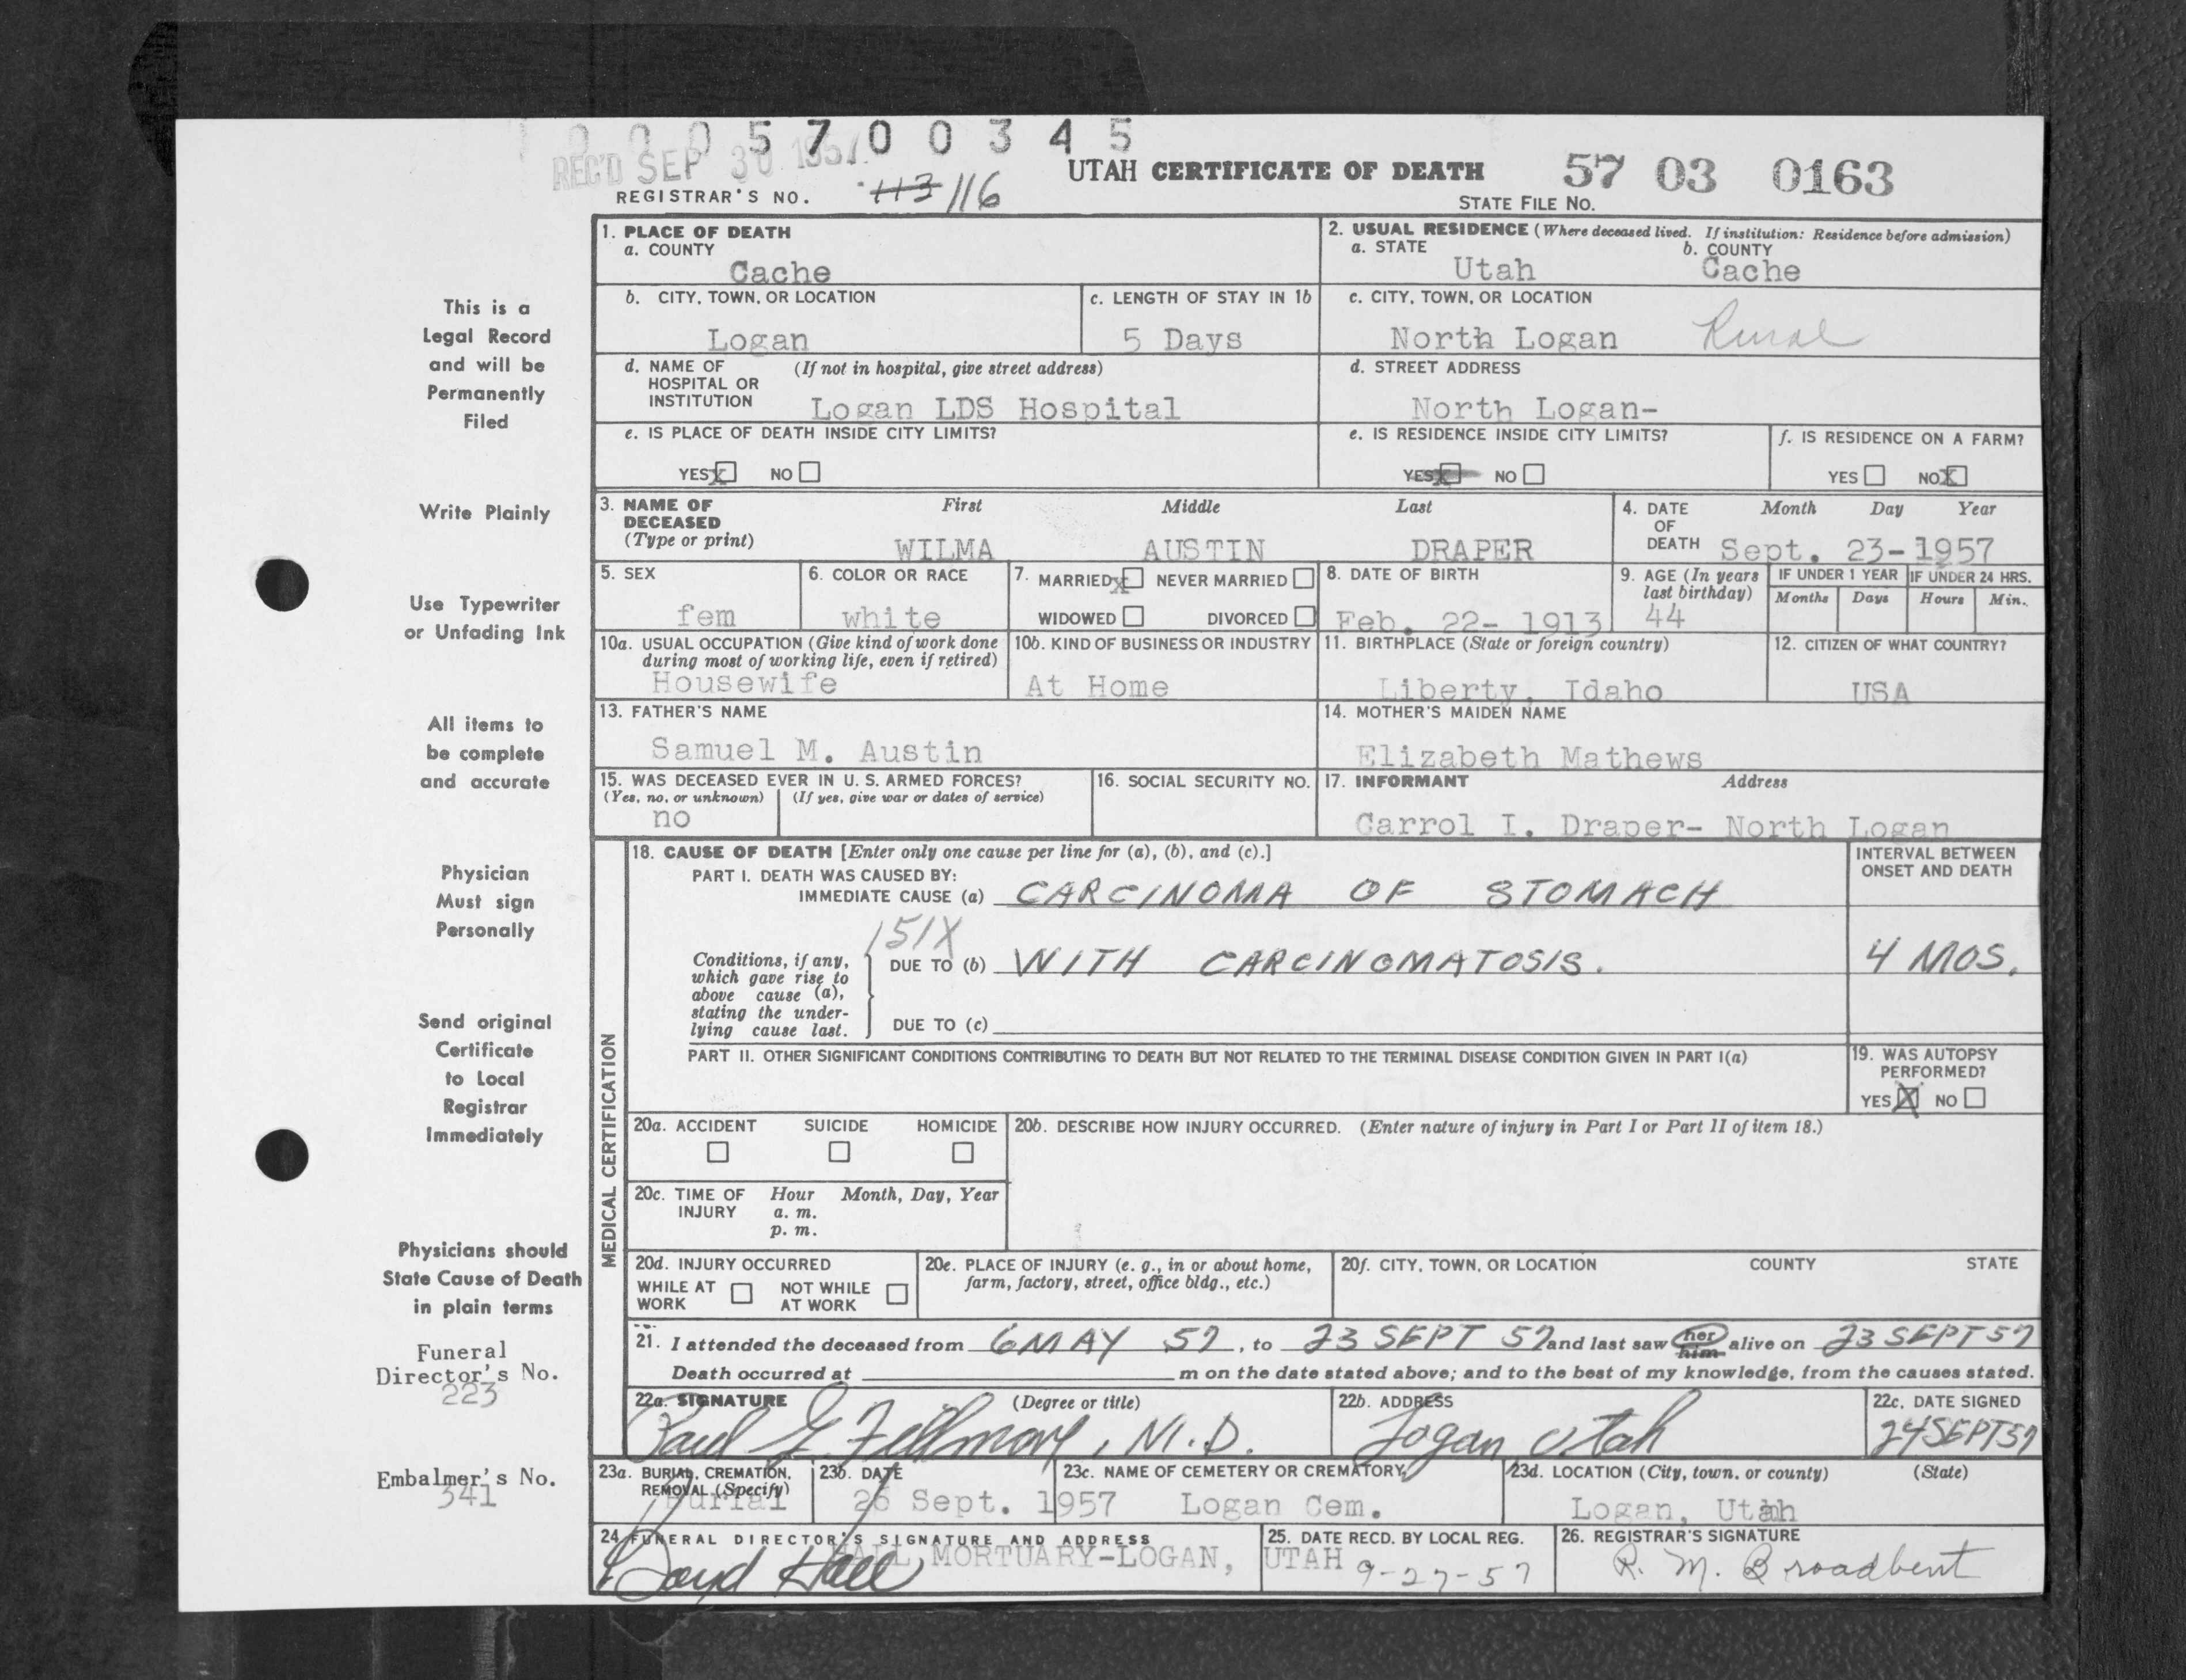 0 0 0 5 7 0 0 3 4 5
REC'D SEP 30 1957
UTAH CERTIFICATE OF DEATH 57 03 0163
REGISTRAR'S NO. 113 116 STATE FILE NO.
This is a
Legal Record
and will be
Permanently
Filed
Write Plainly
Use Typewriter
or Unfading Ink
All items to
be complete
and accurate
Physician
Must sign
Personally
Send original
Certificate
to Local
Registrar
Immediately
Physicians should
State Cause of Death
in plain terms
Funeral
Director's No.
223
Embalmer's No.
341
1. PLACE OF DEATH
a. COUNTY
Cache
2. USUAL RESIDENCE (Where deceased lived. If institution: Residence before admission)
a. STATE b. COUNTY
Utah Cache
b. CITY, TOWN, OR LOCATION c. LENGTH OF STAY IN 1b c. CITY, TOWN, OR LOCATION
Logan 5 Days North Logan Rural
d. NAME OF (If not in hospital, give street address)
HOSPITAL OR
INSTITUTION Logan LDS Hospital
d. STREET ADDRESS
North Logan-
e. IS PLACE OF DEATH INSIDE CITY LIMITS?
YES X NO
e. IS RESIDENCE INSIDE CITY LIMITS?
YES X NO
f. IS RESIDENCE ON A FARM?
YES NO X
3. NAME OF DECEASED (Type or print) First Middle Last
WILMA AUSTIN DRAPER
4. DATE OF DEATH Month Day Year
Sept. 23-1957
5. SEX
fem
6. COLOR OR RACE
white
7. MARRIED X NEVER MARRIED
WIDOWED DIVORCED
8. DATE OF BIRTH
Feb. 22- 1913
9. AGE (In years last birthday)
44
IF UNDER 1 YEAR IF UNDER 24 HRS.
Months Days Hours Min.
10a. USUAL OCCUPATION (Give kind of work done
during most of working life, even if retired)
Housewife
10b. KIND OF BUSINESS OR INDUSTRY
At Home
11. BIRTHPLACE (State or foreign country)
Liberty, Idaho
12. CITIZEN OF WHAT COUNTRY?
USA
13. FATHER'S NAME
Samuel M. Austin
14. MOTHER'S MAIDEN NAME
Elizabeth Mathews
15. WAS DECEASED EVER IN U. S. ARMED FORCES?
(Yes, no, or unknown) (If yes, give war or dates of service)
no
16. SOCIAL SECURITY NO.
17. INFORMANT Address
Carrol I. Draper- North Logan
MEDICAL CERTIFICATION
18. CAUSE OF DEATH [Enter only one cause per line for (a), (b), and (c).]
PART I. DEATH WAS CAUSED BY:
IMMEDIATE CAUSE (a) CARCINOMA OF STOMACH
INTERVAL BETWEEN
ONSET AND DEATH
151X
Conditions, if any,
which gave rise to
above cause (a),
stating the under-
lying cause last.
DUE TO (b) WITH CARCINOMATOSIS. 4 MOS.
DUE TO (c)
PART II. OTHER SIGNIFICANT CONDITIONS CONTRIBUTING TO DEATH BUT NOT RELATED TO THE TERMINAL DISEASE CONDITION GIVEN IN PART I(a)
19. WAS AUTOPSY
PERFORMED?
YES X NO
20a. ACCIDENT SUICIDE HOMICIDE
20b. DESCRIBE HOW INJURY OCCURRED. (Enter nature of injury in Part I or Part II of item 18.)
20c. TIME OF INJURY Hour Month, Day, Year
a. m.
p. m.
20d. INJURY OCCURRED
WHILE AT WORK NOT WHILE AT WORK
20e. PLACE OF INJURY (e. g., in or about home,
farm, factory, street, office bldg., etc.)
20f. CITY, TOWN, OR LOCATION COUNTY STATE
21. I attended the deceased from 6 MAY 57, to 23 SEPT 57 and last saw her him alive on 23 SEPT 57
Death occurred at m on the date stated above; and to the best of my knowledge, from the causes stated.
22a. SIGNATURE (Degree or title)
Paul G. Fillmore, M.D.
22b. ADDRESS
Logan Utah
22c. DATE SIGNED
24 SEPT 57
23a. BURIAL, CREMATION,
REMOVAL (Specify)
Burial
23b. DATE
26 Sept. 1957
23c. NAME OF CEMETERY OR CREMATORY
Logan Cem.
23d. LOCATION (City, town, or county) (State)
Logan, Utah
24. FUNERAL DIRECTOR'S SIGNATURE AND ADDRESS
HALL MORTUARY-LOGAN, UTAH
Boyd Hall
25. DATE RECD. BY LOCAL REG.
9-27-57
26. REGISTRAR'S SIGNATURE
R. M. Broadbent